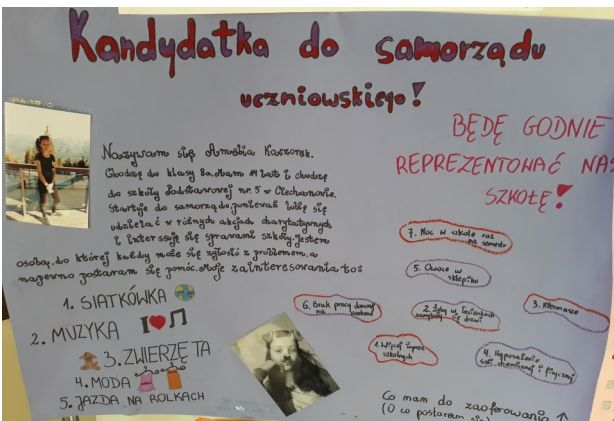 Kandydatka do samorządu
uczniowskiego!
BĘDĘ GODNIE
REPREZENTOWAĆ NAS
SZKOŁĘ!
Nazywam się Amelia Kaczorek.
Chodzę do klasy 8a. Mam 14 lat i chodzę
do szkoły Podstawowej nr. 5 w Ciechanowie.
Startuję do samorządu, ponieważ lubię się
udzielać w różnych akcjach charytatywnych
i interesuję się sprawami szkoły. Jestem
osobą, do której każdy może się zgłosić z problemem, a
napewno postaram się pomóc. Moje zainteresowania to:
1. SIATKÓWKA
2. MUZYKA I
3. ZWIERZĘTA
4. MODA
5. JAZDA NA ROLKACH
7. Noc w szkole raz
na semestr
5. Owoce w
sklepiku
6. Brak pracy domowej
na weekend
2. Żeby w łazienkach
zamykały się drzwi
3. Kiermasze
1. Więcej imprez
szkolnych
4. Wyposażenie
sali chemicznej i fizycznej
Co mam do zaoferowania ↑
(O co postaram się)